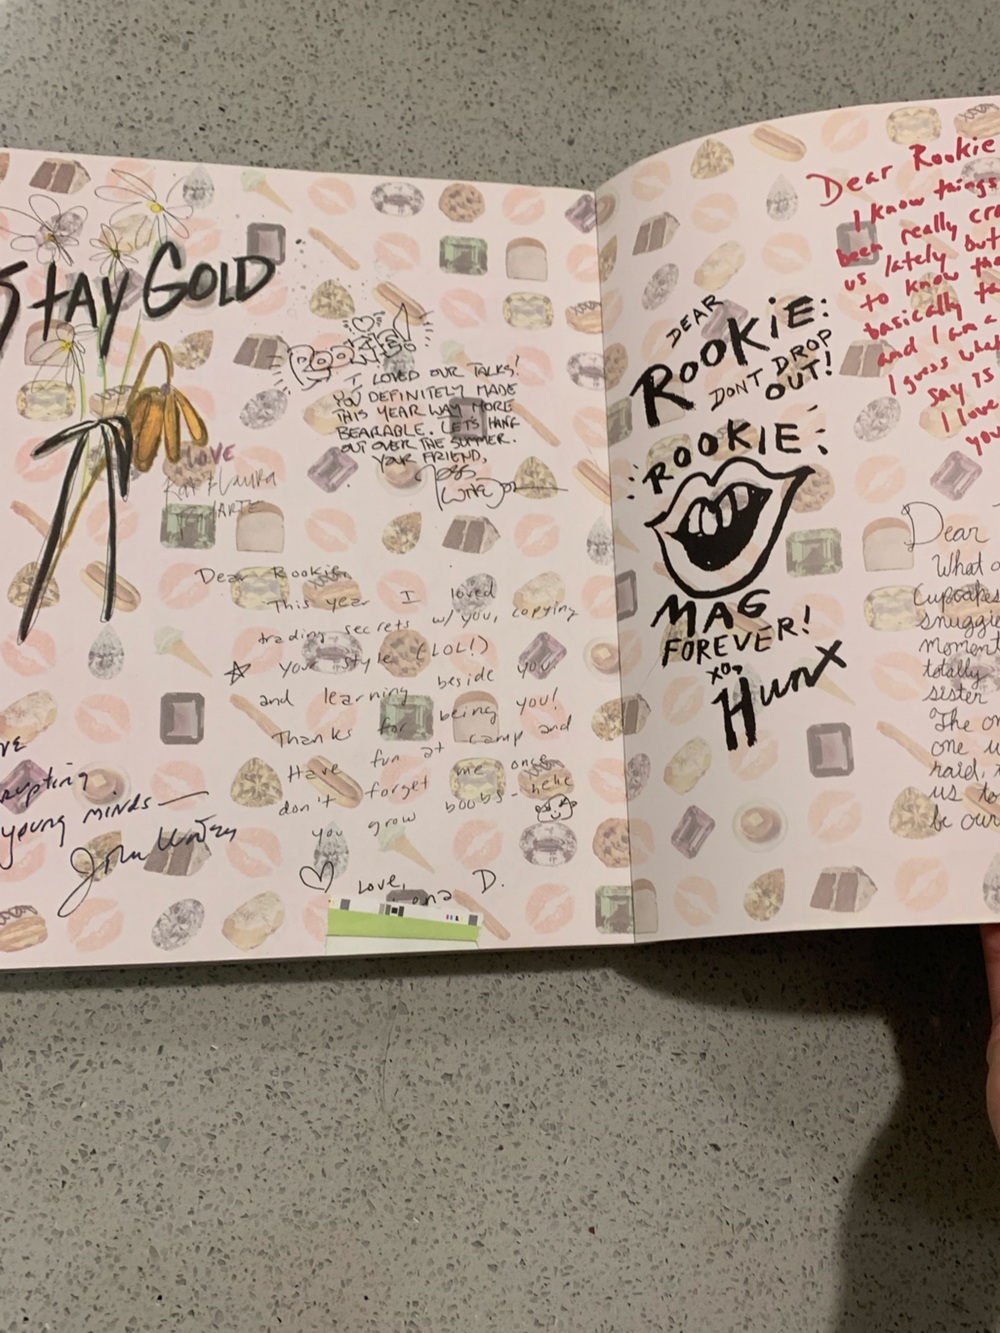 STAY GOLD
LOVE
Kat & Laura
ROOKIE!
I LOVED OUR TALKS!
YOU DEFINITELY MADE
THIS YEAR WAY MORE
BEARABLE. LETS HANG
OUT OVER THE SUMMER.
YOUR FRIEND,
Dear Rookie,
This year I loved
trading secrets w/ you, copying
your style (LOL!)
and learning beside you.
Thanks for being you!
Have fun at camp and
don't forget me once
you grow boobs - hehe
Love,
D.
young minds—
John Waters
DEAR
ROOKIE:
DONT DROP
OUT!
ROOKIE
MAG
FOREVER!
xo,
Hunx
Dear Rookie
I know things
been really
us lately but
to know
basically
and I am a
I guess
say is
I love
you
Dear
What
Cupcakes
snuggi
moment
totally
sister
The
one
raid,
us to
be our